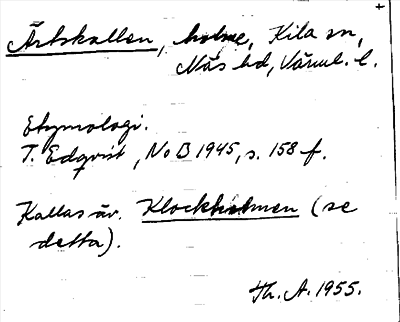 Ärtskallen, holme, Kila sn,
Näs hd, Värml. l.
Etymologi.
T. Edqvist, NoB 1945, s. 158 f.
Kallas äv. Klockholmen (se
detta).
Th. A. 1955.